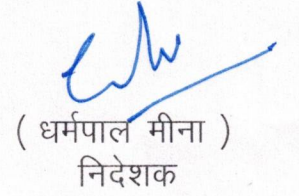 ( धर्मपाल मीना )
निदेशक